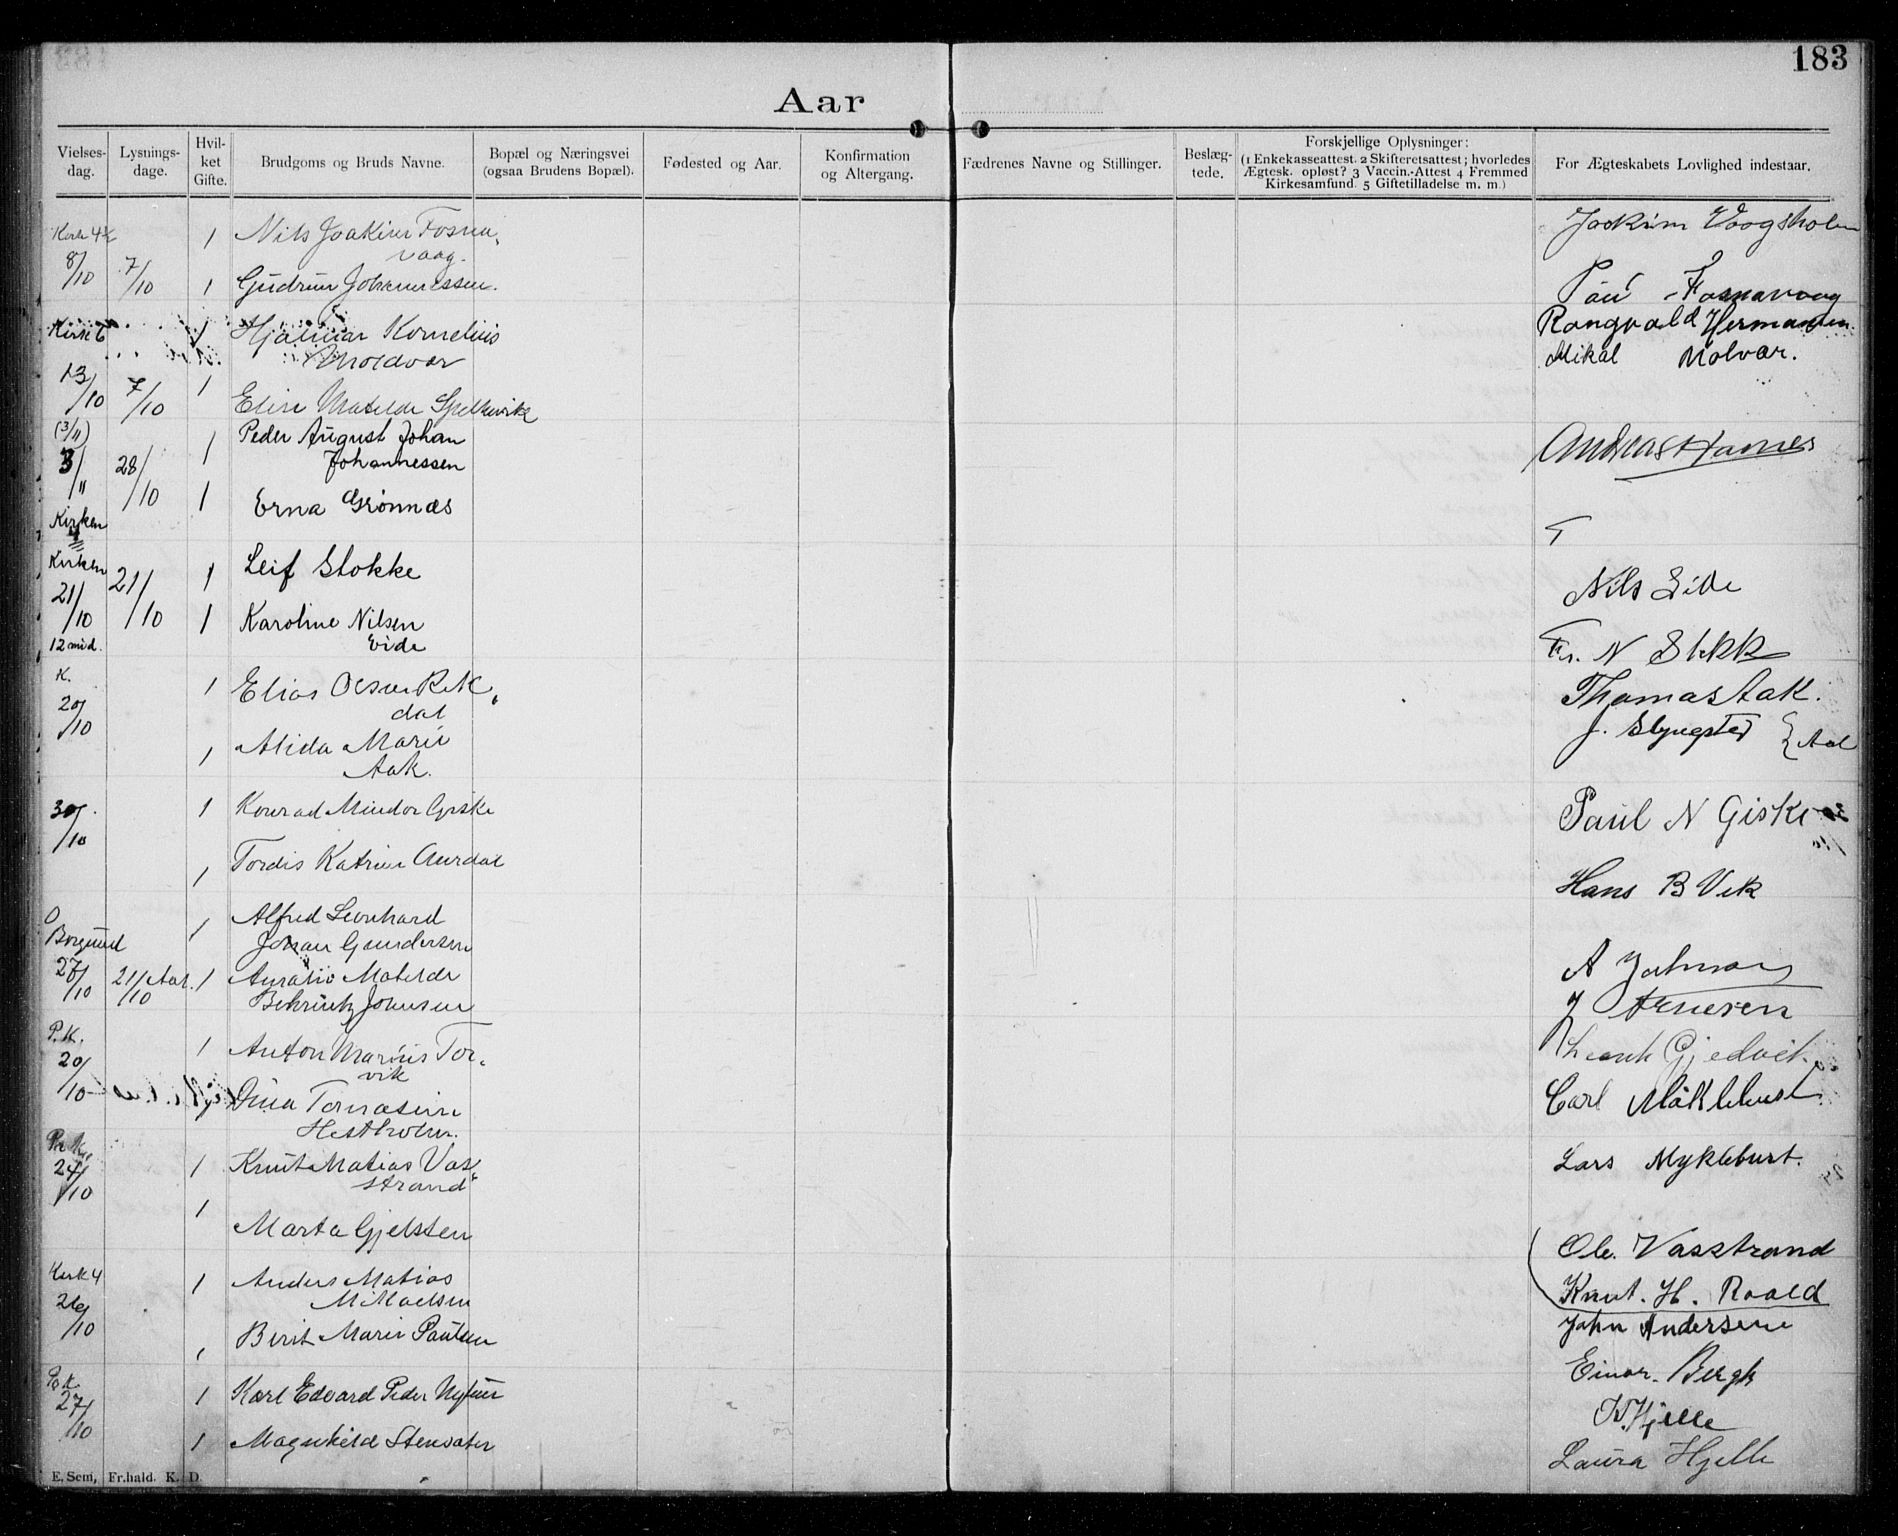 183
Aar
Vielses-
dag.
Lysnings-
dage.
Hvil-
ket
Gifte.
Brudgoms og Bruds Navne.
Bopæl og Næringsvei
(ogsaa Brudens Bopæl).
Fødested og Aar.
Konfirmation
og Altergang.
Fædrenes Navne og Stillinger.
Beslæg-
tede.
Forskjellige Oplysninger:
(1 Enkekasseattest. 2 Skifteretsattest; hvorledes
Ægtesk. opløst? 3 Vaccin.-Attest 4 Fremmed
Kirkesamfund. 5 Giftetilladelse m. m.)
For Ægteskabets Lovlighed indestaar.
1 Nils Joakim Fosna-
vaag.
8/10 7/10 1 Gudrun Johannessen.
Joakim Vaagsholm
Fosnavaag
1 Hjalmar Kornelius
Moldvær
13/10 7/10 1 Elin Matilde Spelkavik
Rangvald Hermansen.
Mikal Molvær.
(3/11)
3/11 28/10 1 Peder August Johan
Johannessen
1 Erna Grønnæs
Kirken
Andreas Hamnes
Kirken
21/10 21/10 1 Leif Stokke
1 Karoline Nilsen
Eide
12 mid.
Nils Eide
Fr. N
K.
20/10 1 Elias Olsen Rek-
dal
1 Alida Marie
Aak.
Thomas Aak.
J. Slyngsted
30/10 1 Konrad Mindor Giske
1 Tordis Katrine Aurdal
Paul N Giske
Hans B Vik
Borgund
27/10 21/10 1 Alfred Leonhard
Johan Gundersen
1 Matilde
Johnsen
A
Arnesen
P.K.
20/10 1 Anton Marius Tor-
vik
Dina Tomasine
Hestholm.
Carl
24/10 1 Knut Matias Vas-
strand
1 Marta Gjelsten
Lars Myklebust.
Ole. Vasstrand
Knut. H. Roald
Kirk 4
26/10 1 Anders Matias
1 Berit Marie Paulsen
John Andersen
Einar. Bergh
27/10 1 Karl Edvard Peder
1 Magnhild Stensæter
Hjelle
Laura Hjelle
E. Sem, Fr.hald. K. D.